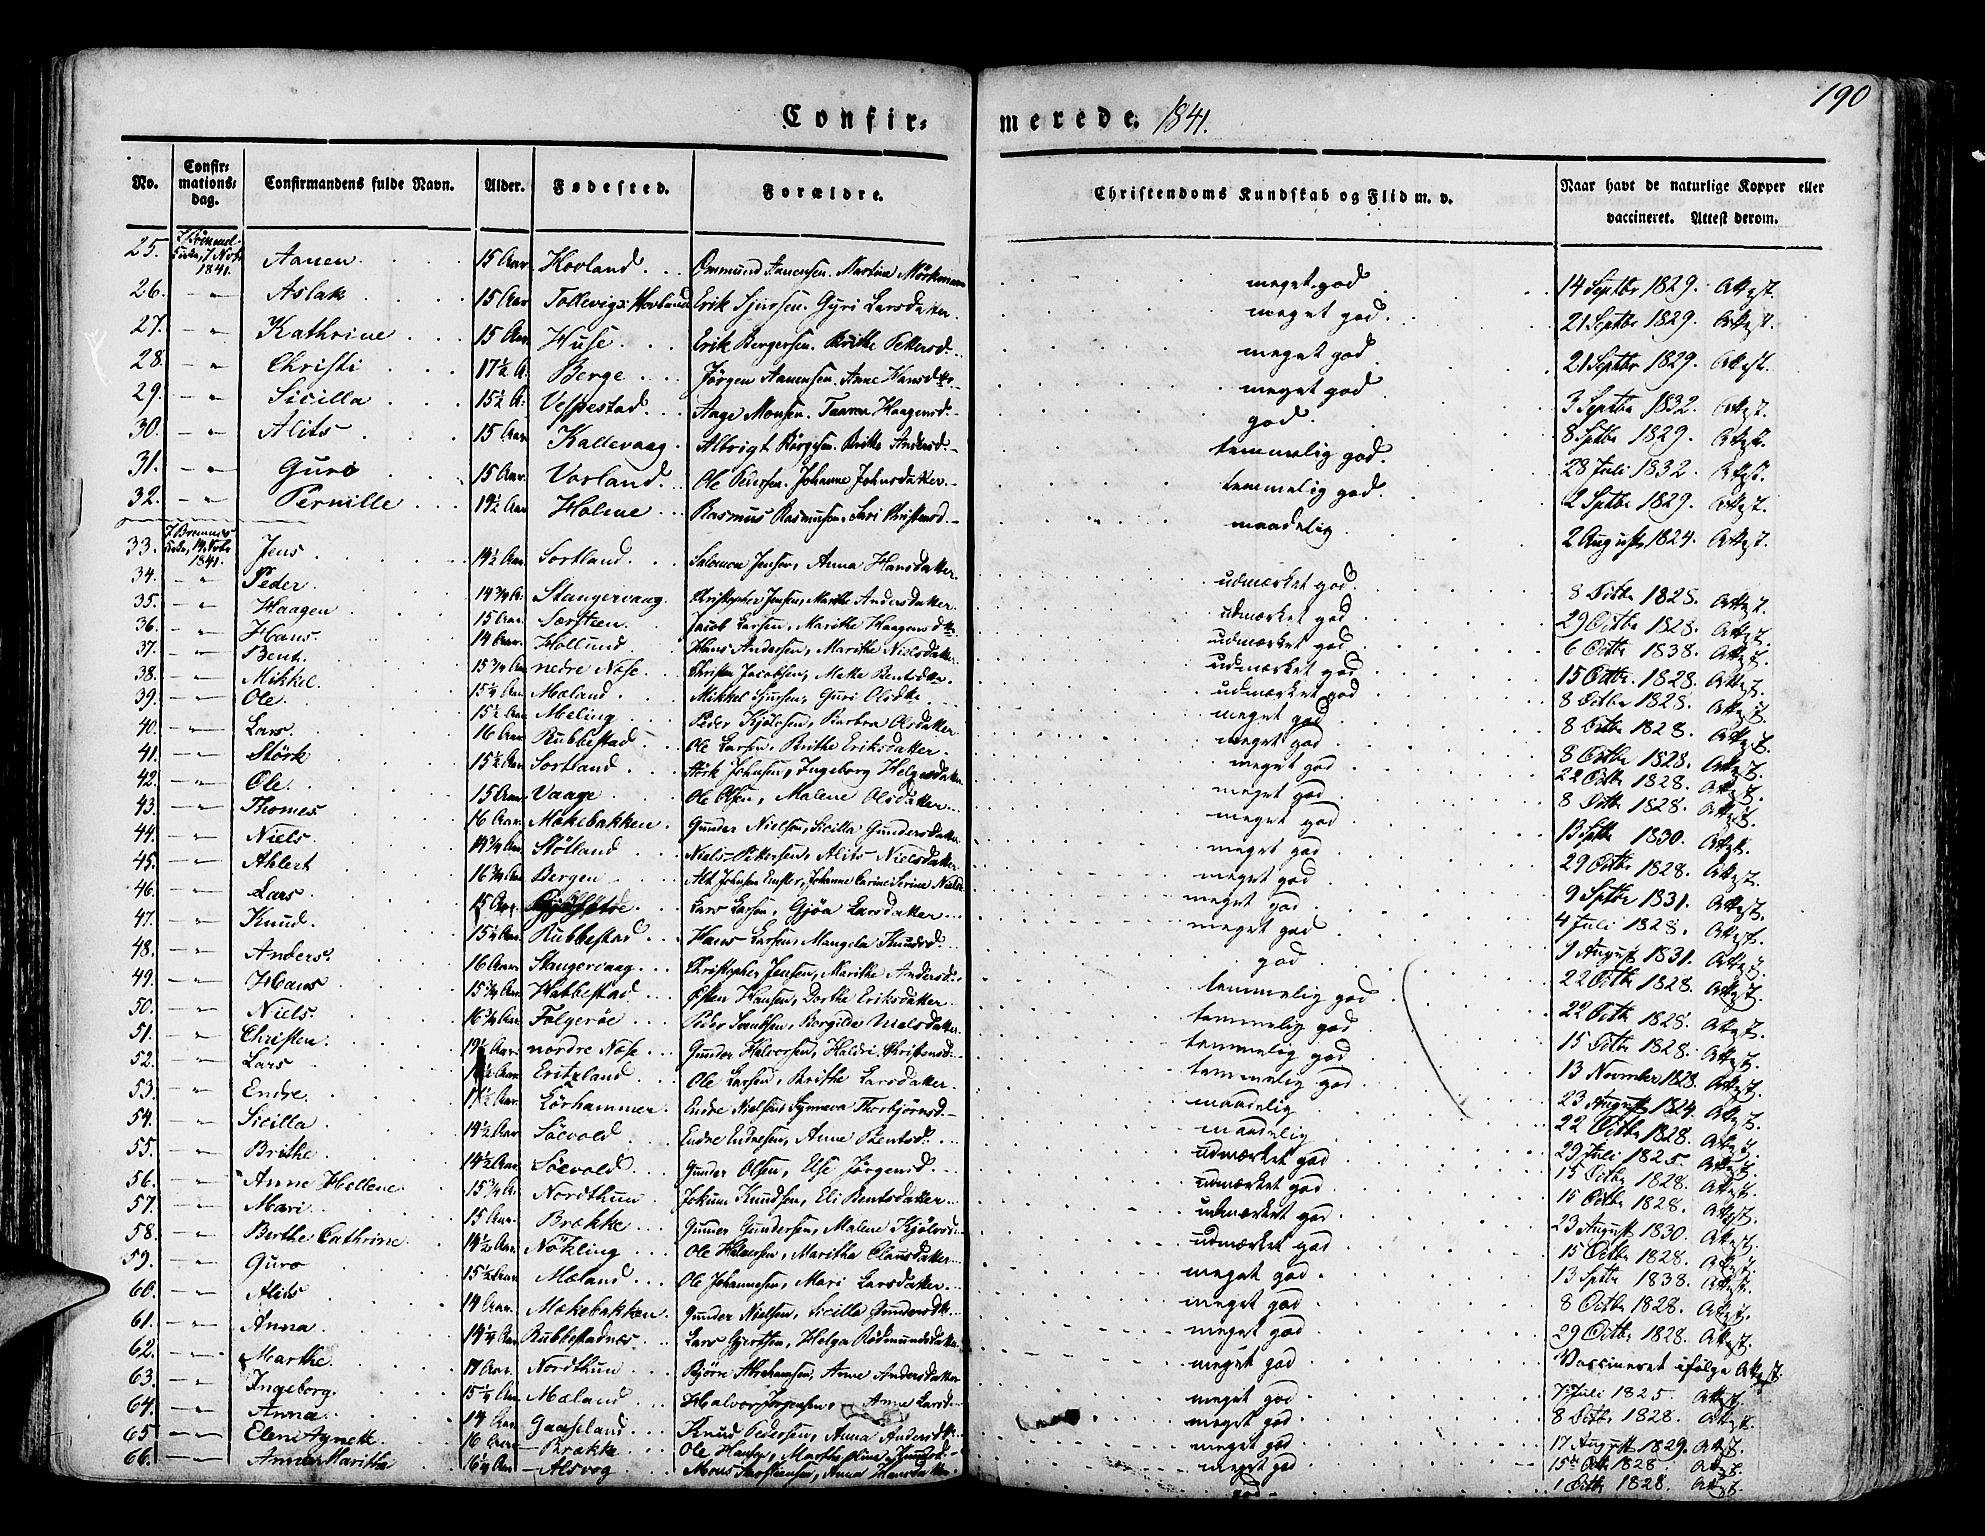 190
Confirmerede. 1841.
No. Confirmations-dag. Confirmandens fulde Navn. Alder. Fødested. Forældre. Christendoms Kundskab og Flid m. v. Naar havt de naturlige Kopper eller vaccineret. Attest derom.
25. 7 Nov 1841. Aanen 15 Aar Hovland Ommund Aanensen. Martha meget god 14 Septbr 1829. Attest.
26. — „ — Aslak 15 Aar Tollevigs Hovland Erik Sjursen. Gyri Larsdatter. meget god. 21 Septbr 1829. Attest.
27. — „ Kathrine 15 Aar Huse Erik Bergersen. Brithe Pettersd. meget god 21 Septbr 1829. Attest.
28. — „ Christi 17½ A. Berge Jörgen Aanensen. Anne Hansdtr. meget god 3 Septbr 1832. Attest.
29. — „ Sicilla 15½ A. Vespestad. Aage Monsen. Haagensd. god. 8 Septbr 1829. Attest.
30. — „ — Alits 15 Aar Kallevaag. Albrigt Börgesen. Brithe Andersd. temmelig god. 28 Juli 1832. Attest.
31. — „ Guro 15 Aar. Vorland. Ole Pedersen. Johanne Johnsdatter. temmelig god. 2 Septbr 1829. Attest.
32. — „ — Pernille 19½ Aar Holme Rasmus Rasmusen. Christensd. maadelig 2 August 1824. Attest.
33. 14 Novbr 1841. Jens 14½ Aar Sortland. Salomon Jensen, Anna Hansdatter. udmærket god. 8 Octbr 1828. Attest.
34. — „ Peder 14¾ A. Stangervaag. Christopher Jensen, Marithe Andersdatter. udmærket god 29 Octbr 1828. Attest.
35. — „ Haagen 15 Aar. Særsteen. Jacob Larsen, Marithe Haagensdtr. udmærket god 6 Octbr 1838. Attest.
36. — „ Hans. 14 Aar. Hollund. Hans Andersen, Marithe Nielsdatter. udmærket god 15 Octbr. 1828. Attest.
37. — „ Bent. 15¾ Aar nedre Nese. Christen Jacobsen, Mette Bentsdtr. udmærket god 8 Octbr 1828. Attest.
38. — „ Mikkel. 15¼ Aar Mæland. Mikkel Sjursen, Guri Olsdtr. meget god 8 Octbr 1828. Attest.
39. — „ Ole. 15½ Aar Meling. Peder Kjölesen, Barbra Olsdatter. meget god 8 Octbr 1828. Attest.
40. — „ Lars. 16 Aar Rubbestad. Ole Larsen, Brithe Eriksdatter. meget god 22 Octbr 1828. Attest.
41. — „ Störk 15½ Aar Sortland. Störk Johnsen, Ingeborg Helgesdatter meget god 8 Octbr 1828. Attest.
42. — „ Ole. 15 Aar. Vaage Ole Olsen, Malene Olsdatter. meget god 13 Septbr 1830. Attest.
43. — „ Thomes 16 Aar. Mökebakken. Gunder Nielsen, Sicilla Gundersdatter. meget god 29 Octbr 1828. Attest.
44. — „ Niels 14¾ Aar Stölland Niels Pettersen, Alits Nielsdatter. meget god 9 Septbr 1831. Attest.
45. — „ Ahlert 16¾ Aar. Bergen Johnsen Johanne Carine Serine meget god 4 Juli 1828. Attest.
46. — „ Lars. 15 Aar. Lars Larsen, Gjöa Larsdatter. meget god 1 August 1831. Attest.
47. — „ Knud. 15¼ Aar. Rubbestad Hans Larsen, Mangela Knudsd. god 22 Octbr 1828. Attest.
48. — „ Anders. 16 Aar. Stangervaag. Christopher Jensen, Marithe Andersd. temmelig god 22 Octbr 1828. Attest.
49. — „ Hans 15¾ Aar. Habbestad Östen Hansen, Dorthe Eriksdatter. temmelig god 15 Octbr 1828. Attest.
50. — „ Niels. 16¾ Aar. Folgeröe Peder Svendsen, Borgilda Nielsdatter. temmelig god 13 November 1828. Attest.
51. — „ Christen. 19½ Aar. nordre Nese Gunder Halvorsen, Haldri Christensd. temmelig god 23 August 1824. Attest.
52. — „ Lars Eritzland. Ole Larsen, Brithe Larsdatter. maadelig 22 Octbr 1828. Attest.
53. — „ Endre. Lörhammer. Endre Nielsen, Synneva Thorbjörnsd. maadelig 29 Juli 1825. Attest.
54. — „ Sicilla 14½ Aar Söevold. Endre Endresen, Anne Bentsd. udmærket god 15 Octbr 1828. Attest.
55. — „ Brithe. 14½ Aar. Söevold. Gunder Olsen, Else Jörgensd. udmærket god 15 Octbr 1828. Attest.
56. — „ Anne Hellene. 15¾ A. Nordthun Jokum Knudsen, Eli Bentsdatter. udmærket god 23 August 1830. Attest.
57. — „ Mari 15 Aar. Brække Gunner Gundersen, Malene Kjölesd. udmærket god 15 Octbr 1828. Attest.
58. — „ Berthe Cathrine. 14½ Aar. Nökling Ole Marithe Clausdatter. meget god. 13 Septbr 1838. Attest.
59. — „ Guro 15½ Aar. Mæland Ole Johannesen, Mari Larsdatter. meget god 8 Octbr 1828. Attest.
60. — „ Alits 14 Aar. Mökebakken. Gunder Nielsen, Sicilla Gundersdtr. meget god 29 Octbr 1828. Attest.
61. — „ Anna 14¼ Aar Rubbestadnæs. Lars Gjertsen, Helga Rødmundsdatter meget god Vaccineret ifølge Attest.
62. — „ Marthe. 14 Aar. Nordthun. Björn Abrahamsen, Anne Andersdatter meget god 7 Juli 1825. Attest.
63. — „ Ingeborg. 15¼ Aar Mæland Halvor Jörgensen, Anne Larsd. meget god 8 Octbr 1828. Attest.
64. — „ Anna. 14 Aar. Gaaseland. Knud Pedersen, Anna Andersdtr. meget god 17 August 1829. Attest.
65 — „ Eleni Agnett 16 Aar. Brække. Ole Hansen, Marthe meget god 15 Octbr 1828 Attest.
66. — „ Anna Maritha 16¼ Aar Alsvog Anna Hansdatter. god. 1 Octbr 1828. Attest.